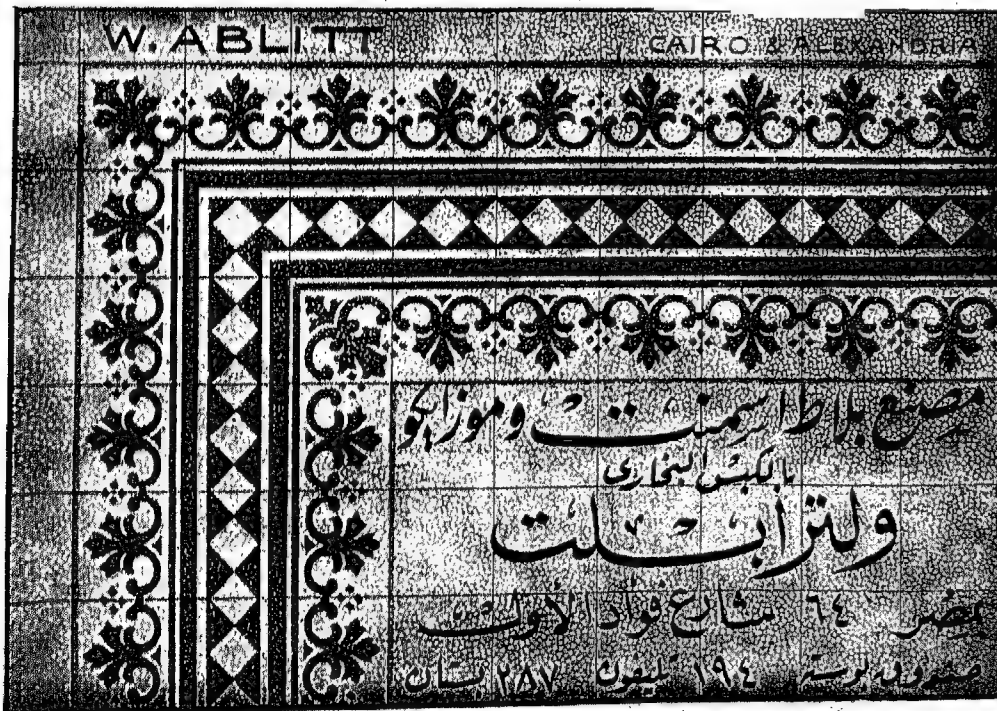 W. ABLITT
CAIRO & ALEXANDRIA
مصنع بلاط اسمنت وموزايكو
بالكبش البخارى
ولتر ابلت
بمصر ٦٤ شارع فؤاد الاول
صندوق بوستة ١٩٤ تليفون ٢٨٧ بستان